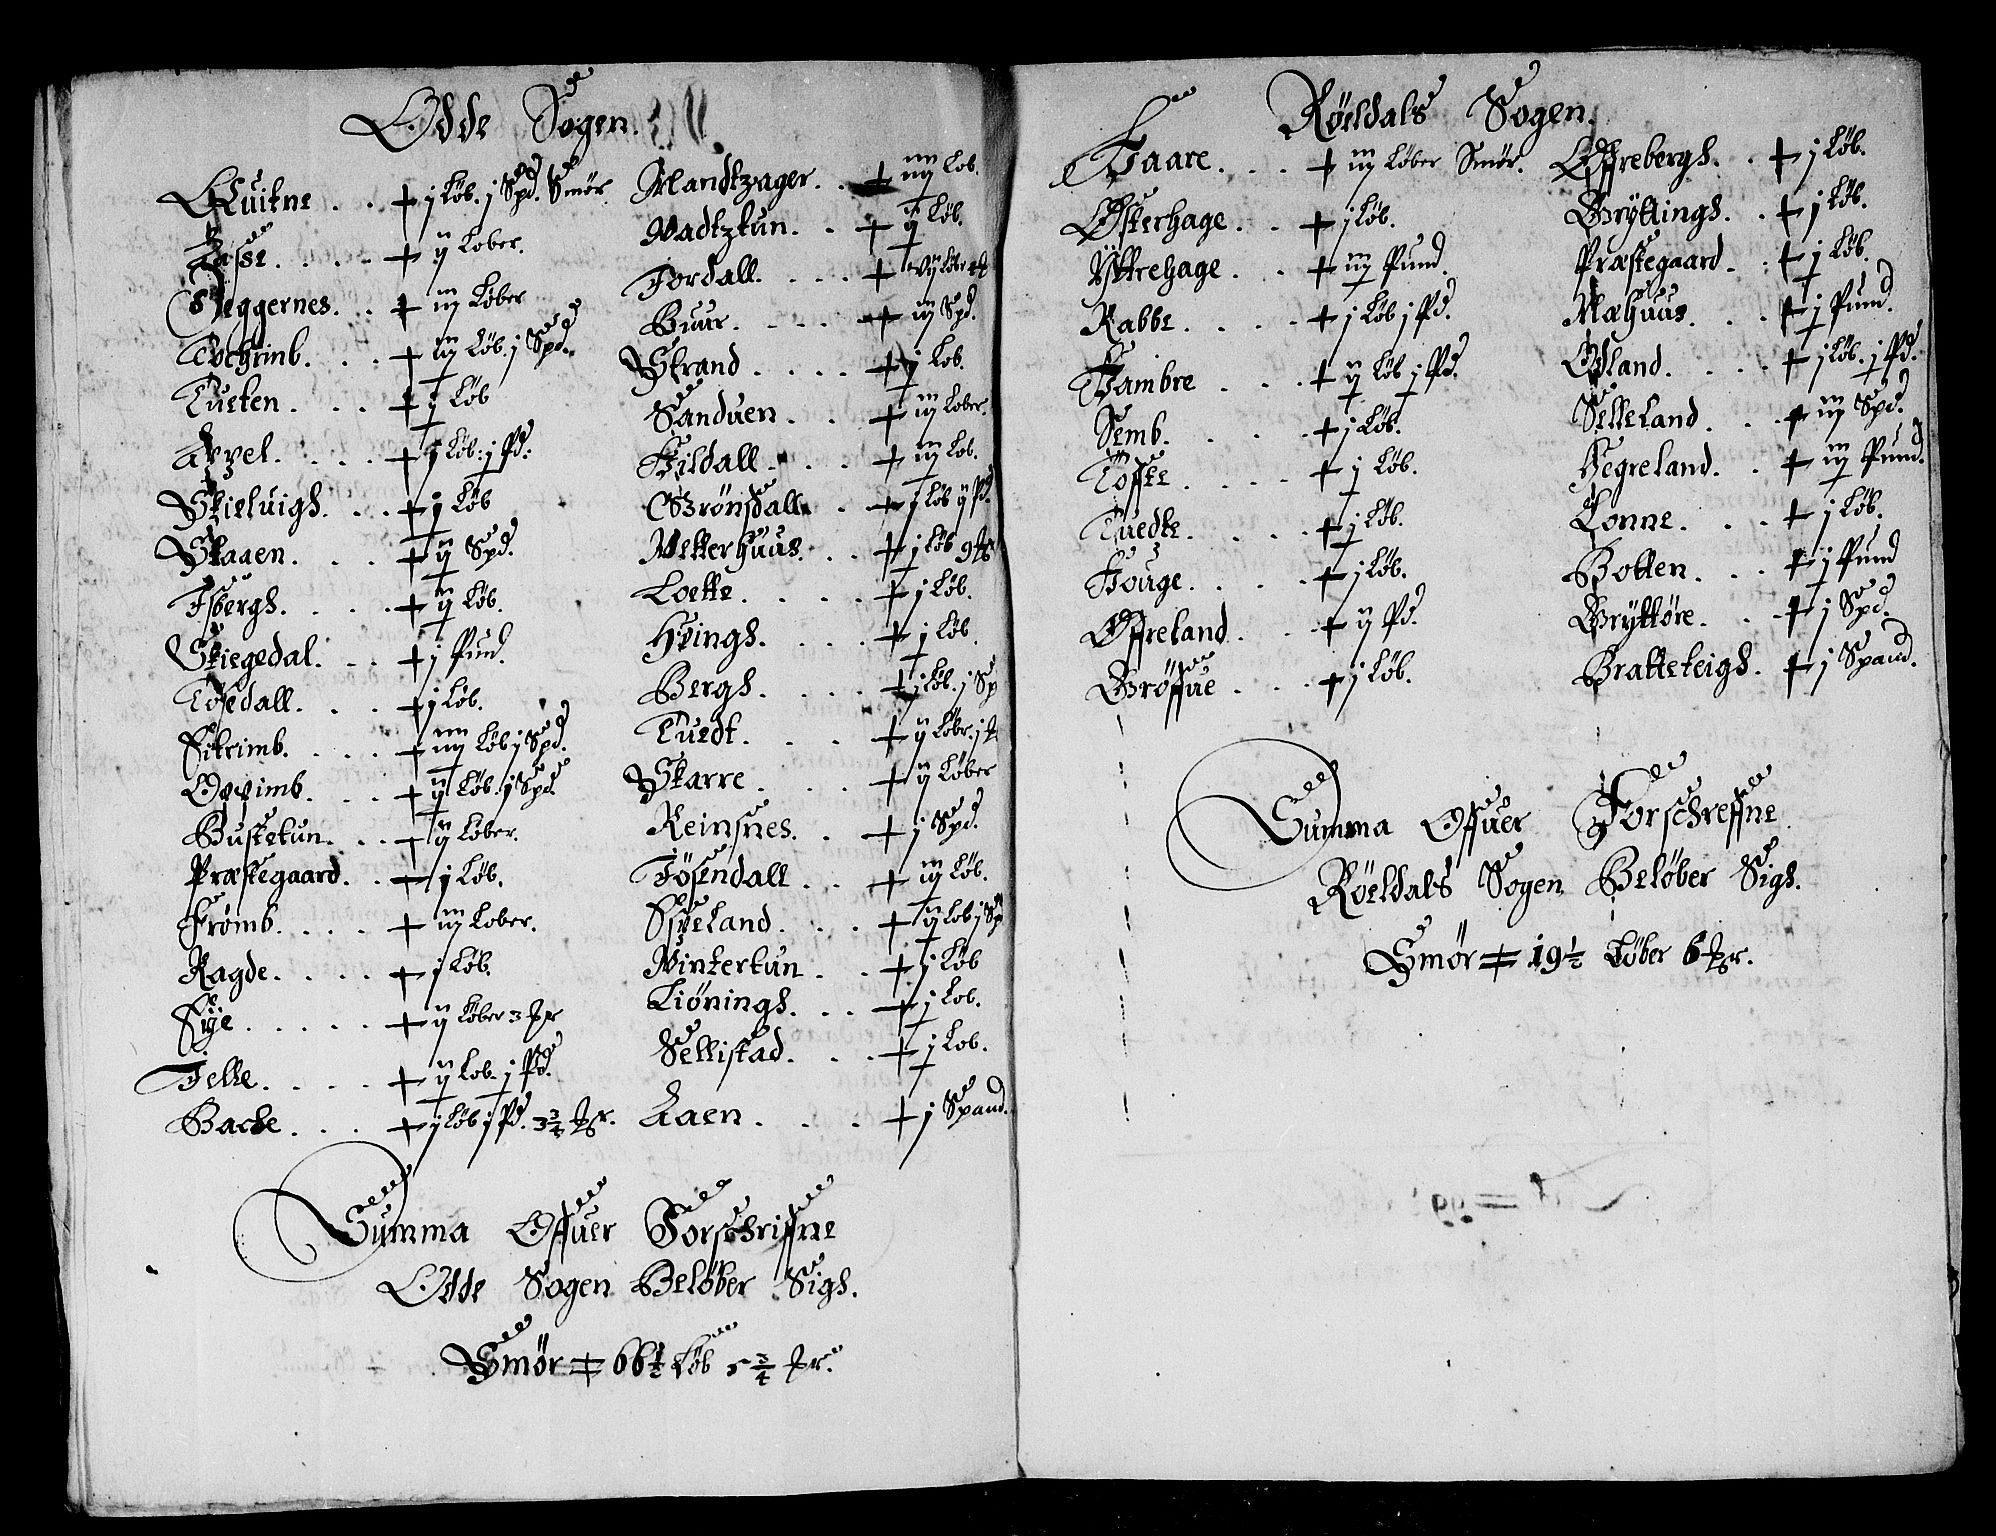 Odde Sogen.
Quitne . . + j Løb. j Spd. Smør
Aasse . . . . + ij Løber.
Eggernes. . + iij Løber
Tochrimb. . . . + iij Løb. j Spd.
Tueten . . . + j Løb
Appel. . . . + j Løb: j Pd:
Skieluigh. . . + j Løb
Staaen. . . . + ij Spd.
Isbergh. . . . . + ij Løb.
Skiegedal. . . + j Pund.
Tosedall. . . + j Løb.
Sitrimb. . . . + iiij Løb j Spd.
Opvimb. . . . + ij Løb. j Spd.
Bustetun. . . . + ij Løber.
Præstegaard. . + j Løb.
Frømb. . . . . + iij Løber.
Ragde. . . . . + j Løb.
Siye . . . . . + ij Løber 3 Pr
Jelle. . . . . + ij Løb. j Pd.
Backe. . . . + j Løb j Pd. 3 3/4 Pr.
Mandtzager. . + iiij Løb.
Vadtztun. . . + ij Løb.
Jordall. . . . + vij Løb
Buur. . . . . + iij Spd.
Strand . . . . + j Løb.
Sanduen . . + iij Løber.
Hildall. . . . + iij Løb.
Grønsdall. . + j Løb ij Pd.
Vetterhuus. . . + j Løb 9
Loette. . . . . + j Løb.
Hvingh. . . . + j Løb.
Bergh. . . . . + j Løb. j Sp
Tuedt. . . . . + ij Løbr. j
Skarre . . . . + ij Løber
Reinsnes. . . + j Spd.
Jøsendall . . . + iij Løb.
Espeland. . . . + ij Løb j Sp
Vintertun . . + j Løb
Liønings. . . . + j Løb.
Sellistad. . . . + j Løb.
Aaen . . . . + j Spand.
Summa Offuer Forschriffne
Odde Sogen Beløber Sigh.
Smør ≠ 66 1/2 Løb 5 3/4 Pr.
Røeldals Sogen.
Haare. . . . + iij Løber Smør.
Østerhage. . . + j Løb.
Yttrehage . . . + iij Pund.
Rabbe. . . . . + j Løb j Pd.
Hambre . . . + ij Løb j Pd.
Semb. . . . . + j Løb.
Tøffte . . . . . + j Løb.
Tuedte. . . . . + j Løb.
Houge. . . . . + j Løb.
Offreland. . . + ij Pd.
Grøffue . . . . + j Løb.
Offrebergh. . + j Løb.
Gryttingh. . + j Løb.
Præstegaard. . + j Løb.
Næhuus. . . . + j Pund.
Øland. . . . + j Løb. j Pd.
Selleland. . . + iij Spd.
Hegreland. . + iij Pund.
Lonne. . . . + j Løb.
Botten. . . . + j Pund
Gryttøre. . . + j Spd.
Bratteteigh. + j Spand.
Summa Offuer Forschreffne
Røeldals Sogen Beløber Sigh.
Smør ≠ 19 1/2 Løber 6 Pr.